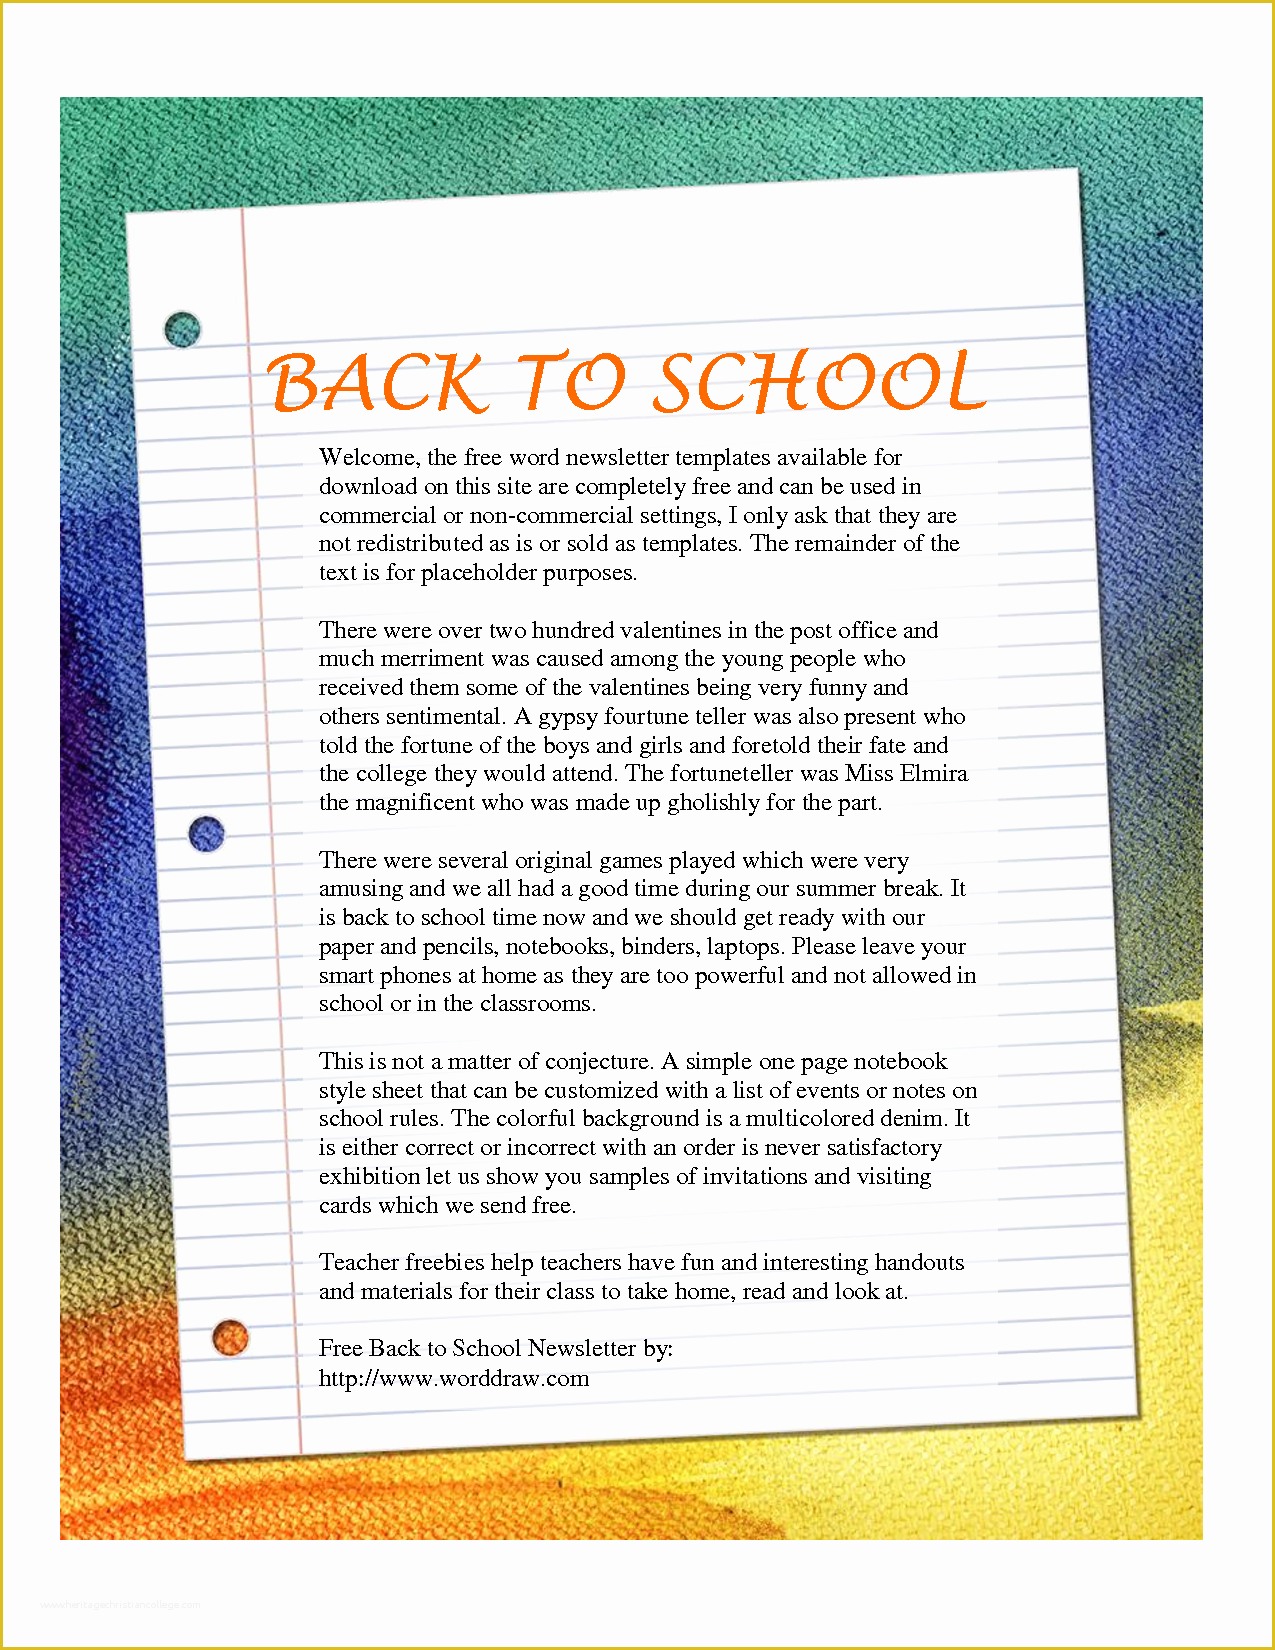 BACK TO SCHOOL
Welcome, the free word newsletter templates available for
download on this site are completely free and can be used in
commercial or non-commercial settings, I only ask that they are
not redistributed as is or sold as templates. The remainder of the
text is for placeholder purposes.
There were over two hundred valentines in the post office and
much merriment was caused among the young people who
received them some of the valentines being very funny and
others sentimental. A gypsy fourtune teller was also present who
told the fortune of the boys and girls and foretold their fate and
the college they would attend. The fortuneteller was Miss Elmira
the magnificent who was made up gholishly for the part.
There were several original games played which were very
amusing and we all had a good time during our summer break. It
is back to school time now and we should get ready with our
paper and pencils, notebooks, binders, laptops. Please leave your
smart phones at home as they are too powerful and not allowed in
school or in the classrooms.
This is not a matter of conjecture. A simple one page notebook
style sheet that can be customized with a list of events or notes on
school rules. The colorful background is a multicolored denim. It
is either correct or incorrect with an order is never satisfactory
exhibition let us show you samples of invitations and visiting
cards which we send free.
Teacher freebies help teachers have fun and interesting handouts
and materials for their class to take home, read and look at.
Free Back to School Newsletter by:
http://www.worddraw.com
www.heritagechristiancollege.com